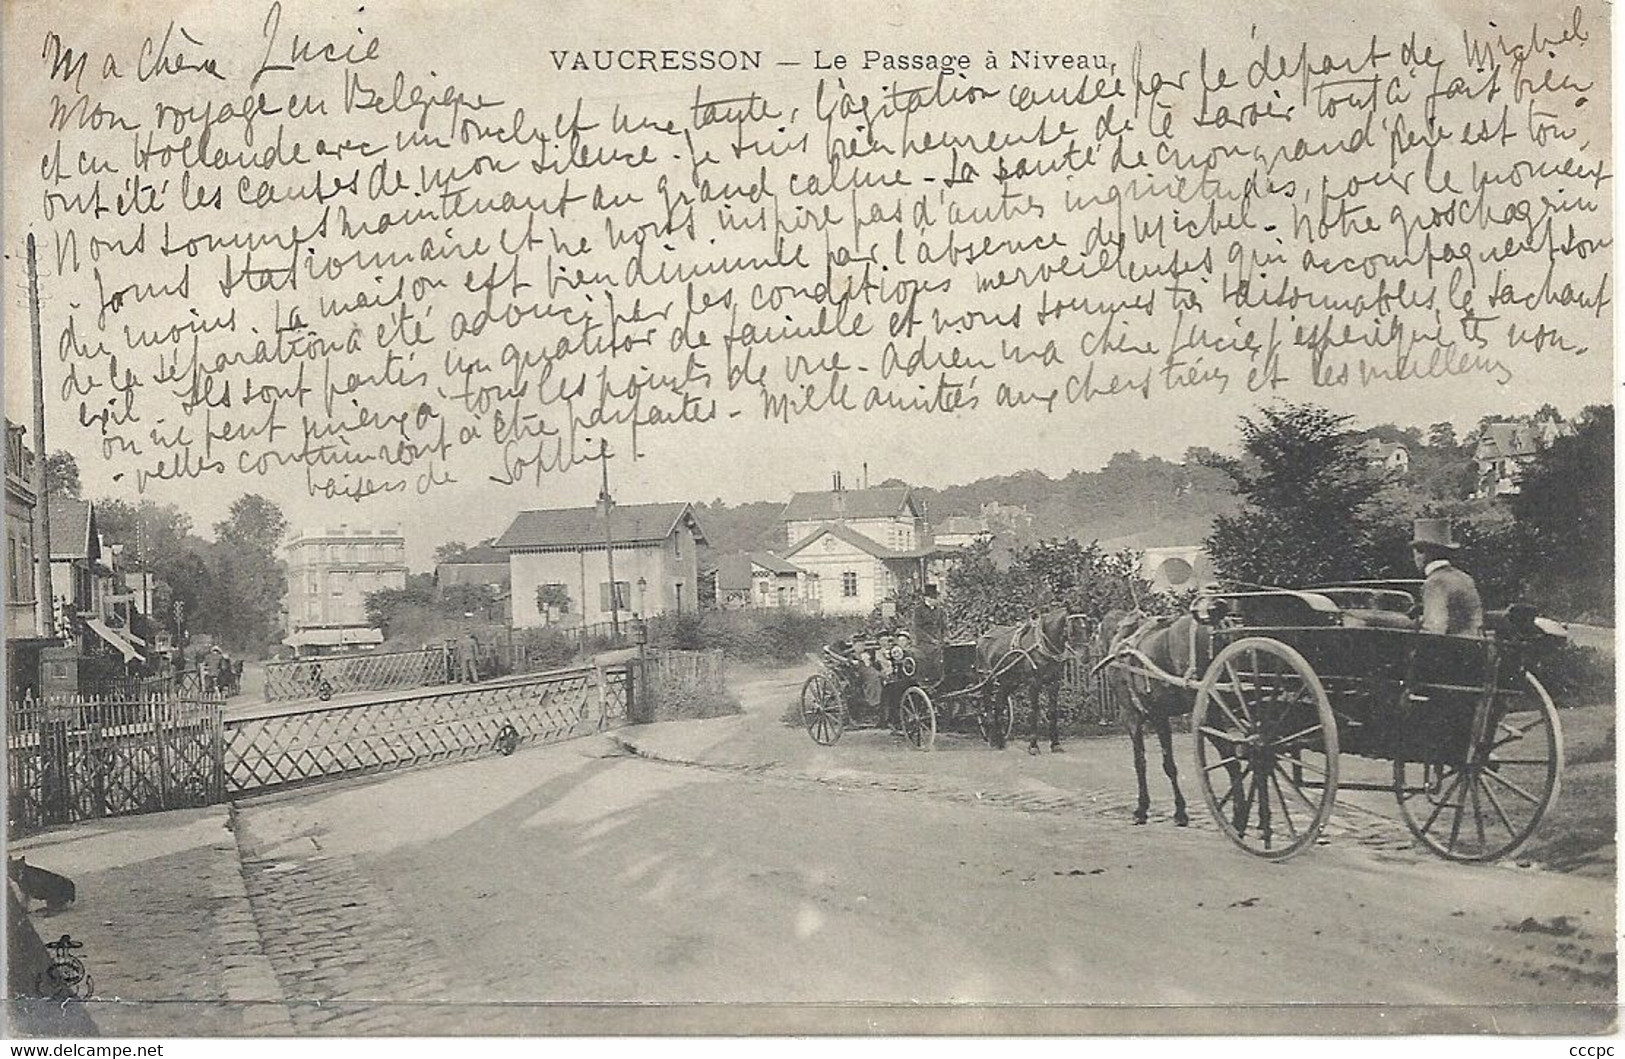 VAUCRESSON — Le Passage à Niveau.
Ma chère Lucie
Mon voyage en Belgique
et en Hollande avec un oncle et une tante, l'agitation causée par le départ de Michel
ont été les causes de mon silence. Je suis bien heureuse de te savoir tout à fait bien.
Nous sommes maintenant au grand calme - La santé de mon grand'Père est tou-
-jours stationnaire et ne nous inspire pas d'autres inquiétudes, pour le moment
du moins. La maison est bien diminuée par l'absence de Michel - Notre gros chagrin
de la séparation a été adouci par les conditions merveilleuses qui accompagnent son
exil. Ils sont partis un quatuor de famille et nous sommes très raisonnables, le sachant
on ne peut mieux à tous les points de vue - Adieu ma chère Lucie, j'espère que tes nou-
-velles continueront à être parfaites - Mille amitiés aux chers tiens et les meilleurs
baisers de Sophie.
cccpc